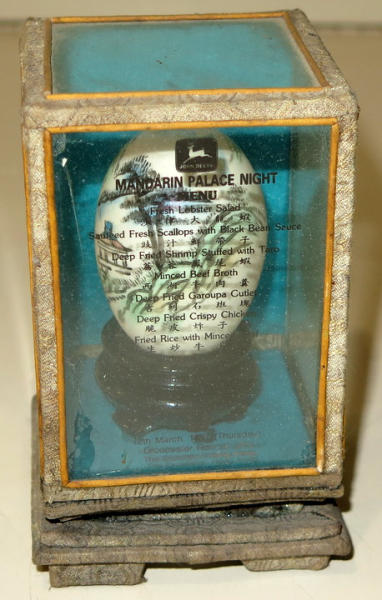 JOHN DEERE
MANDARIN PALACE NIGHT
MENU
Fresh Lobster Salad
大龍蝦
Sauteed Fresh Scallops with Black Bean Sauce
豉汁鮮帶子
Deep Fried Shrimp Stuffed with Taro
蝦
Minced Beef Broth
西湖牛肉羹
Deep Fried Garoupa Cutlet
吉列石斑塊
Deep Fried Crispy Chicken
脆皮炸子
Fried Rice with Minced
生炒牛
March (Thursday)